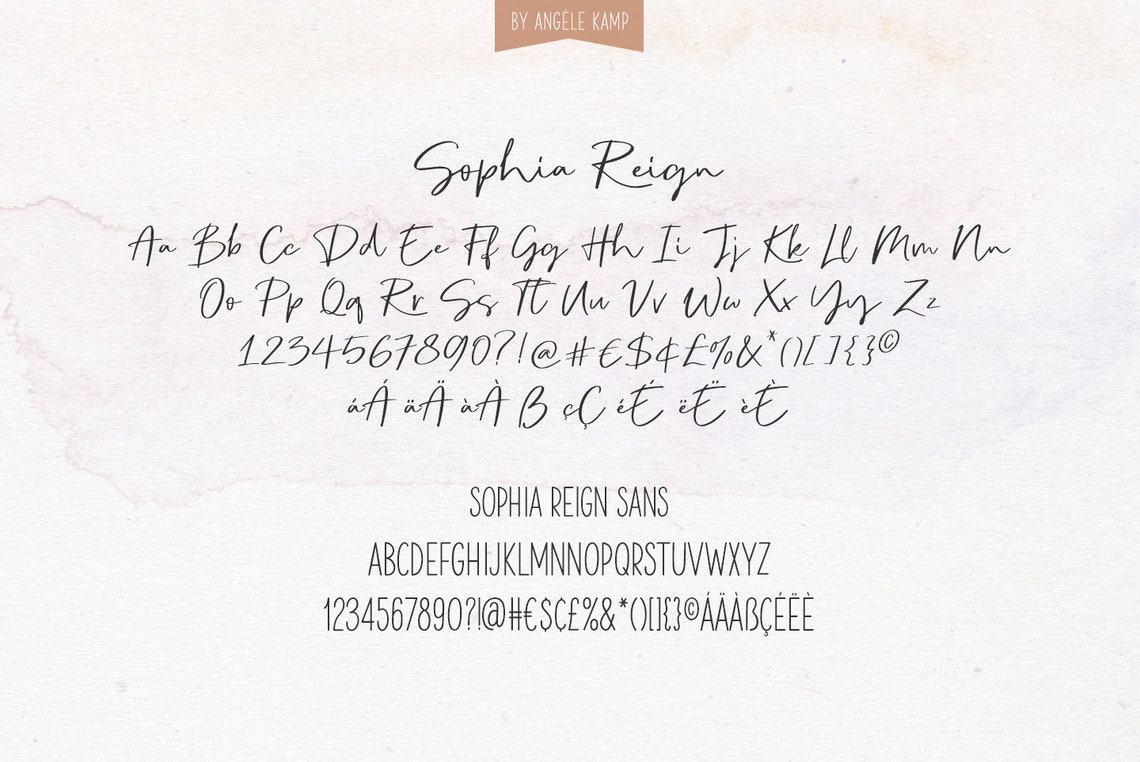 BY ANGÈLE KAMP
Sophia Reign
Aa Bb Cc Dd Ee Ff Gg Hh Ii Jj Kk Ll Mm Nn
Oo Pp Qq Rr Ss Tt Uu Vv Ww Xx Yy Zz
1234567890?!@#€$¢£%&*()[]{}©
áÁ äÄ àÀ ß çÇ éÉ ëË èÈ
SOPHIA REIGN SANS
ABCDEFGHIJKLMNNOPQRSTUVWXYZ
1234567890?!@#€$¢£%&*()[]{}©ÁÄÀßÇÉËÈ